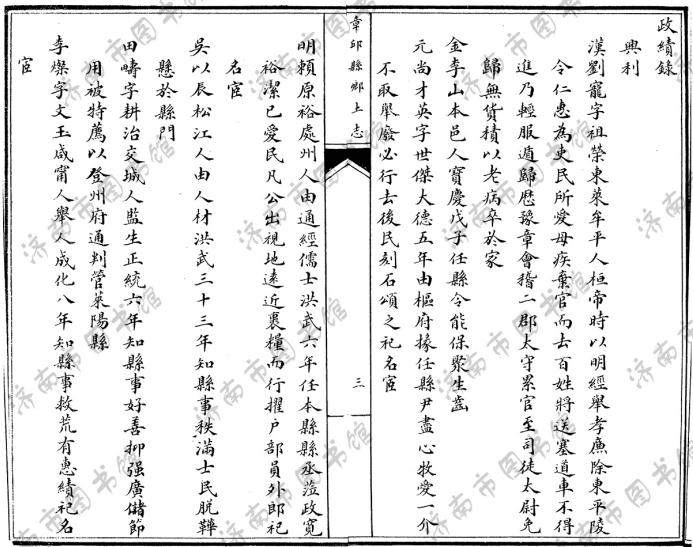 政績錄
興利
漢劉寵字祖榮東萊牟平人桓帝時以明經舉孝廉除東平陵
令仁惠為吏民所愛母疾棄官而去百姓將送塞道車不得
進乃輕服遁歸歷豫章會稽二郡太守累官至司徒太尉免
歸無貨積以老病卒於家
金李山本邑人寶慶戊子任縣令能保聚生齒
元尚才英字世傑大德五年由樞府掾任縣尹盡心牧愛一介
不取舉廢必行去後民刻石頌之祀名宦
章邱縣鄉土志
三
明賴原裕處州人由通經儒士洪武六年任本縣縣丞蒞政寬
裕潔已愛民凡公出視地遠近裹糧而行擢戶部員外郎祀
名宦
吳以辰松江人由人材洪武三十三年知縣事秩滿士民脫鞾
懸於縣門
田疇字耕治交城人監生正統六年知縣事好善抑强廣儲節
用被特薦以登州府通判管萊陽縣
李燦字文玉咸甯人舉人成化八年知縣事救荒有惠績祀名
宦
济南市图书馆
济南市图书馆
济南市图书馆
济南市图书馆
济南市图书馆
济南市图书馆